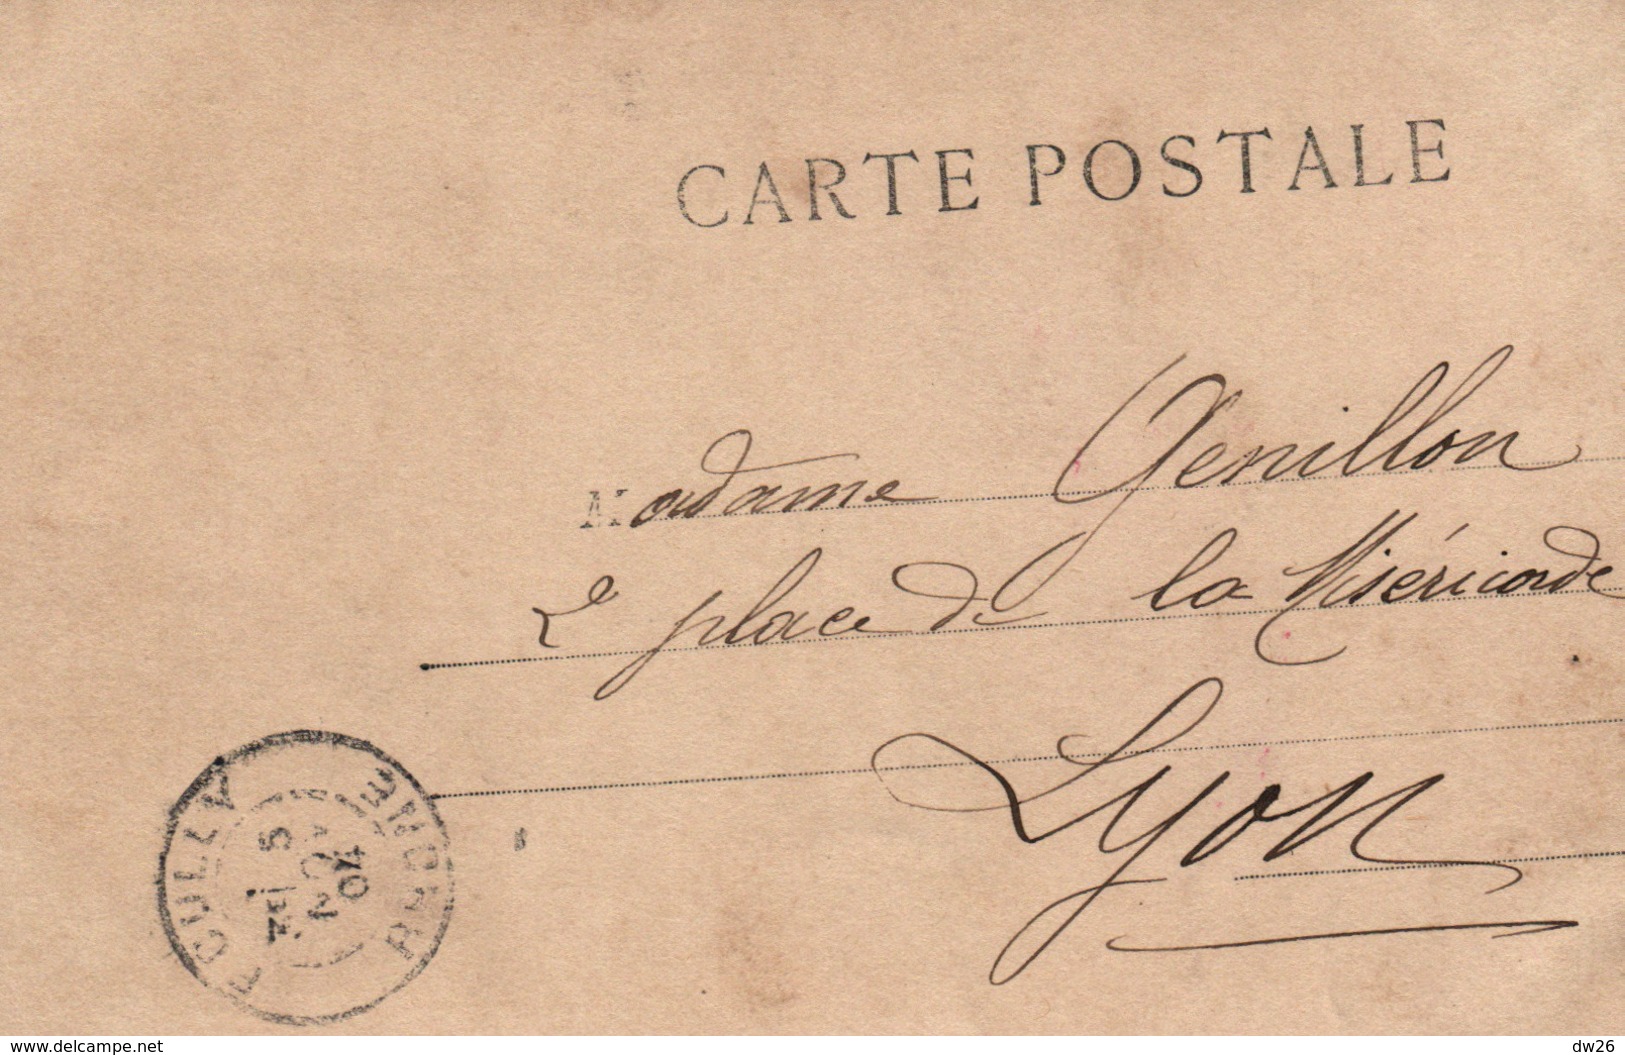 CARTE POSTALE
Madame Genillon
2 place de la Miséricorde
Lyon
ECULLY
RHÔNE
5
04
www.delcampe.net
dw26